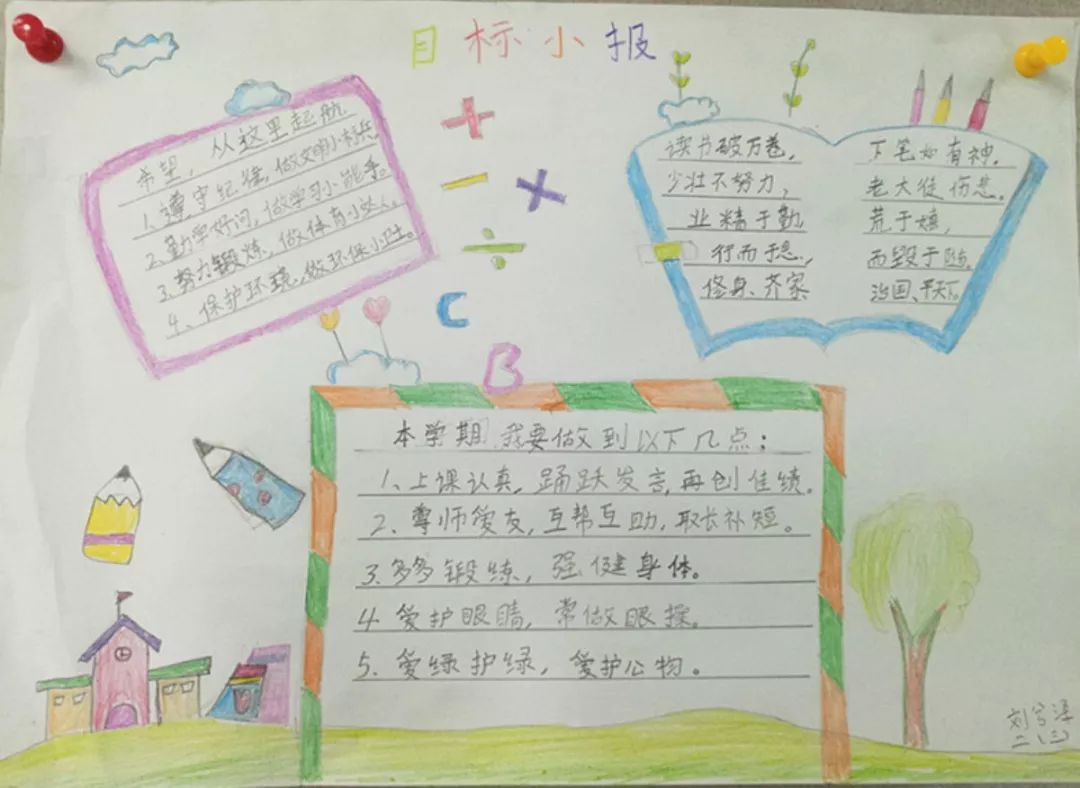 目标小报
希望,从这里起航
1.遵守纪律,做文明小标兵
2.勤学好问,做学习小能手。
3.努力锻炼,做体育小达人。
4、保护环境,做环保小卫士。
+
-
×
÷
C
B
读书破万卷, 下笔如有神。
少壮不努力, 老大徒伤悲。
业精于勤 荒于嬉,
行而于思, 而毁于随。
修身、齐家 治国、平天下。
本学期我要做到以下几点:
1、上课认真,踊跃发言,再创佳绩。
2、尊师爱友,互帮互助,取长补短。
3.多多锻练,强健身体。
4.爱护眼睛,常做眼操。
5.爱绿护绿,爱护公物。
刘
二、三